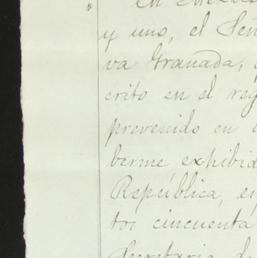 y uno, el Señ
va Granada,
crito en el reg
prevenido en
berme exhibid
República, e
tos cincuenta
Secretaria de